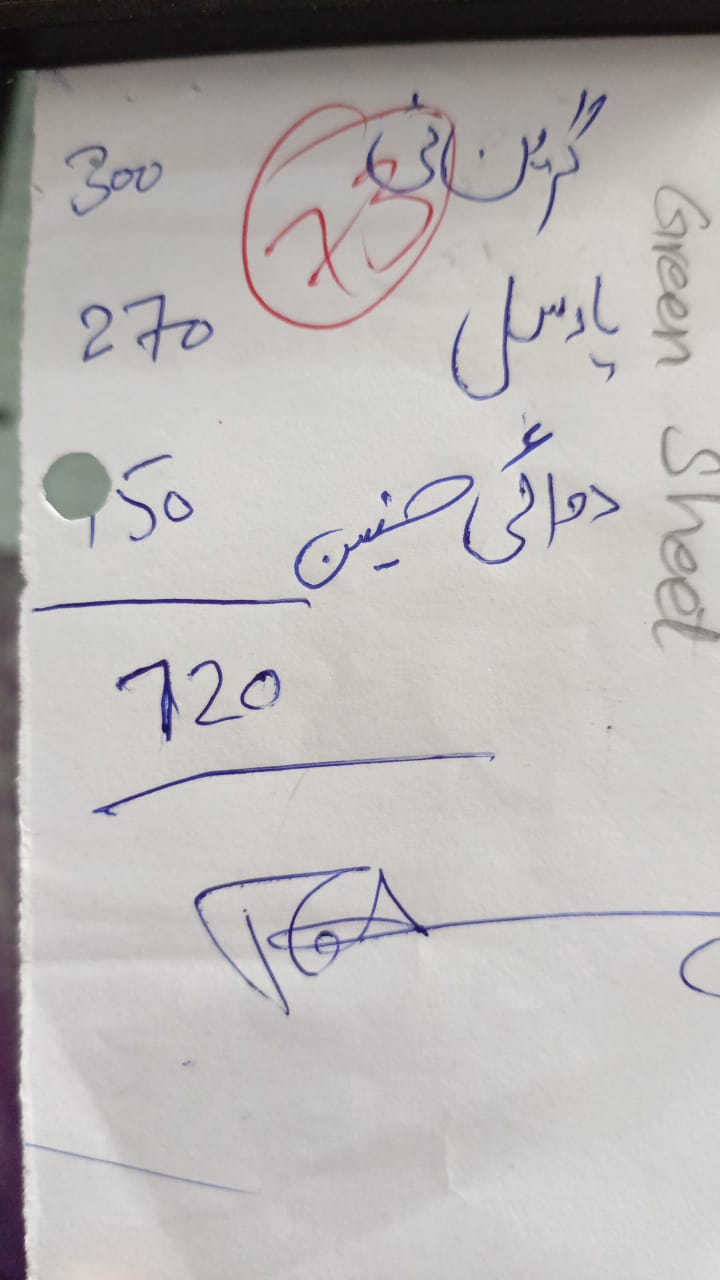 گرین ٹی 300
73
پارسل 270
دوائی حنین 150
720
Green Sheet